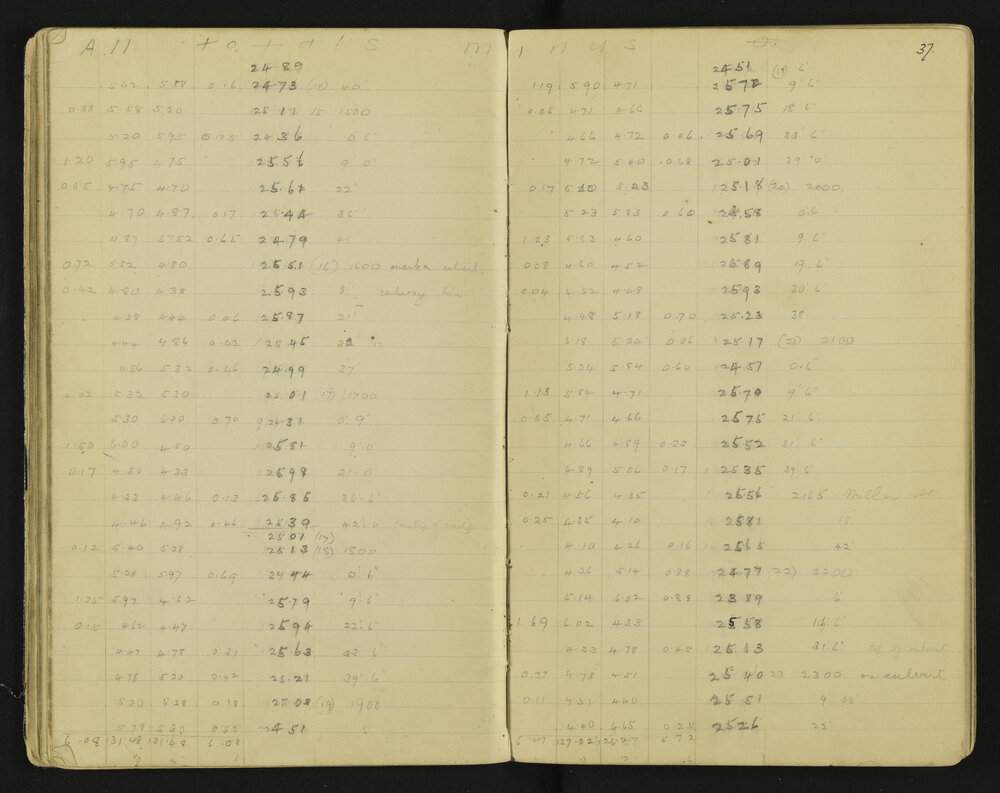 All totals minus 0. 37.
24 89
5.42 5.58 0.16 24 73 (14) 40'
0.38 5.58 5.20 25 11 15 1500
5.20 5.95 0.75 24 36 0.6"
1.20 5.95 4.75 25.56 9' 0"
0.05 4.75 4.70 25.61 22'
4.70 4.87 0.17 25.44 35'
4.87 5.52 0.65 24.79 41'
0.72 5.52 4.80 25.51 (16) 1600
0.42 4.80 4.38 25.93 8' railway line
4.38 4.44 0.06 25.87 21'
4.44 4.86 0.42 25.45
4.86 5.32 0.46 24.99 37
0.02 5.32 5.30 25.01 (17) 1700
5.30 6.00 0.70 24.31 0' 9"
1.50 6.00 4.50 25.81 9' 0"
0.17 4.50 4.33 25.98 21' 0"
4.33 4.46 0.13 25.85 30' 6"
4.46 4.92 0.46 25 39 42' 0
25 01 (17)
0.12 5.40 5.28 25 13 (18) 1800
5.28 5.97 0.69 24 44 0' 6"
1.35 5.97 4.62 25.79 9' 6"
0.15 4.62 4.47 25 94 22' 6"
4.47 4.78 0.31 25.63 33' 6"
4.78 5.20 0.42 25.21 39' 6"
5.20 5.38 0.18 25.03 (19) 1900
5.38 5.90 0.52 24 51 6
6.08 131.48 131.48 6.08
24 51 (19) 6"
1.19 5.90 4.71 25 70 9' 6"
0.05 4.71 4.66 25 75 18' 6"
4.66 4.72 0.06 25 69 33' 6"
4.72 5.40 .068 25.01 39' 0"
0.17 5.40 5.23 25.18 (20) 2000
5.23 5.83 0.60 24.58 0.6"
1.23 5.83 4.60 25 81 9' 6"
0.08 4.60 4.52 25 89 19' 6"
0.04 4.52 4.48 25 93 30' 6"
4.48 5.18 0.70 25.23 38
5.18 5.24 0.06 25 17 (21) 2100
5.24 5.84 0.60 24 57 0.6"
1.13 5.84 4.71 25 70 9' 6"
0.05 4.71 4.66 25 75 21' 6"
4.66 4.89 0.23 25 52 31' 6"
4.89 5.06 0.17 25 35 39' 6"
0.21 4.56 4.35 25.56 2165 Miller St.
0.25 4.35 4.10 25 81 18
4.10 4.26 0.16 25 65 42'
4.26 5.14 0.88 24 77 (22) 2200
5.14 6.02 0.88 23 89 6
1.69 6.02 4.33 25 58 14' 6"
4.33 4.78 0.45 25 13 31' 6" top of culvert
0.27 4.78 4.51 25 40 23 2300 on culvert
0.11 4.51 4.40 25 51 9' 00"
4.40 4.65 0.25 25 26 22'
127.02 126.27 5.72